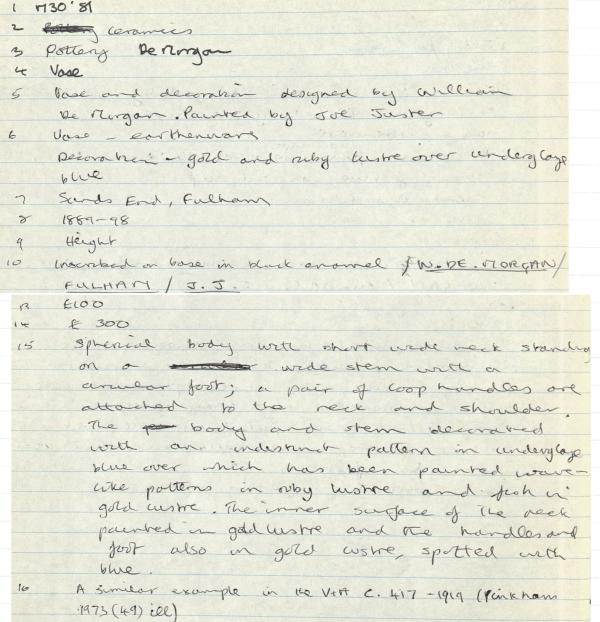 1 M30'81
2 ceramics
3 Pottery De Morgan
4 Vase
5 Vase and decoration designed by William
De Morgan. Painted by Joe Juster
6 Vase - earthenware
Decoration - gold and ruby lustre over underglaze
blue
7 Sands End, Fulham
8 1889-98
9 Height
10 Inscribed on base in black enamel /W. DE. MORGAN/
FULHAM / J. J.
13 £100
14 £ 300
15 Spherical body with short wide neck standing
on a wide stem with a
circular foot; a pair of loop handles are
attached to the neck and shoulder.
The body and stem decorated
with an indistinct pattern in underglaze
blue over which has been painted wave-
like patterns in ruby lustre and fish in
gold lustre. The inner surface of the neck
painted in gold lustre and the handles and
foot also in gold lustre, spotted with
blue.
16 A similar example in the V+A C. 417 - 1919 (Pinkham
1973 (49) ill)